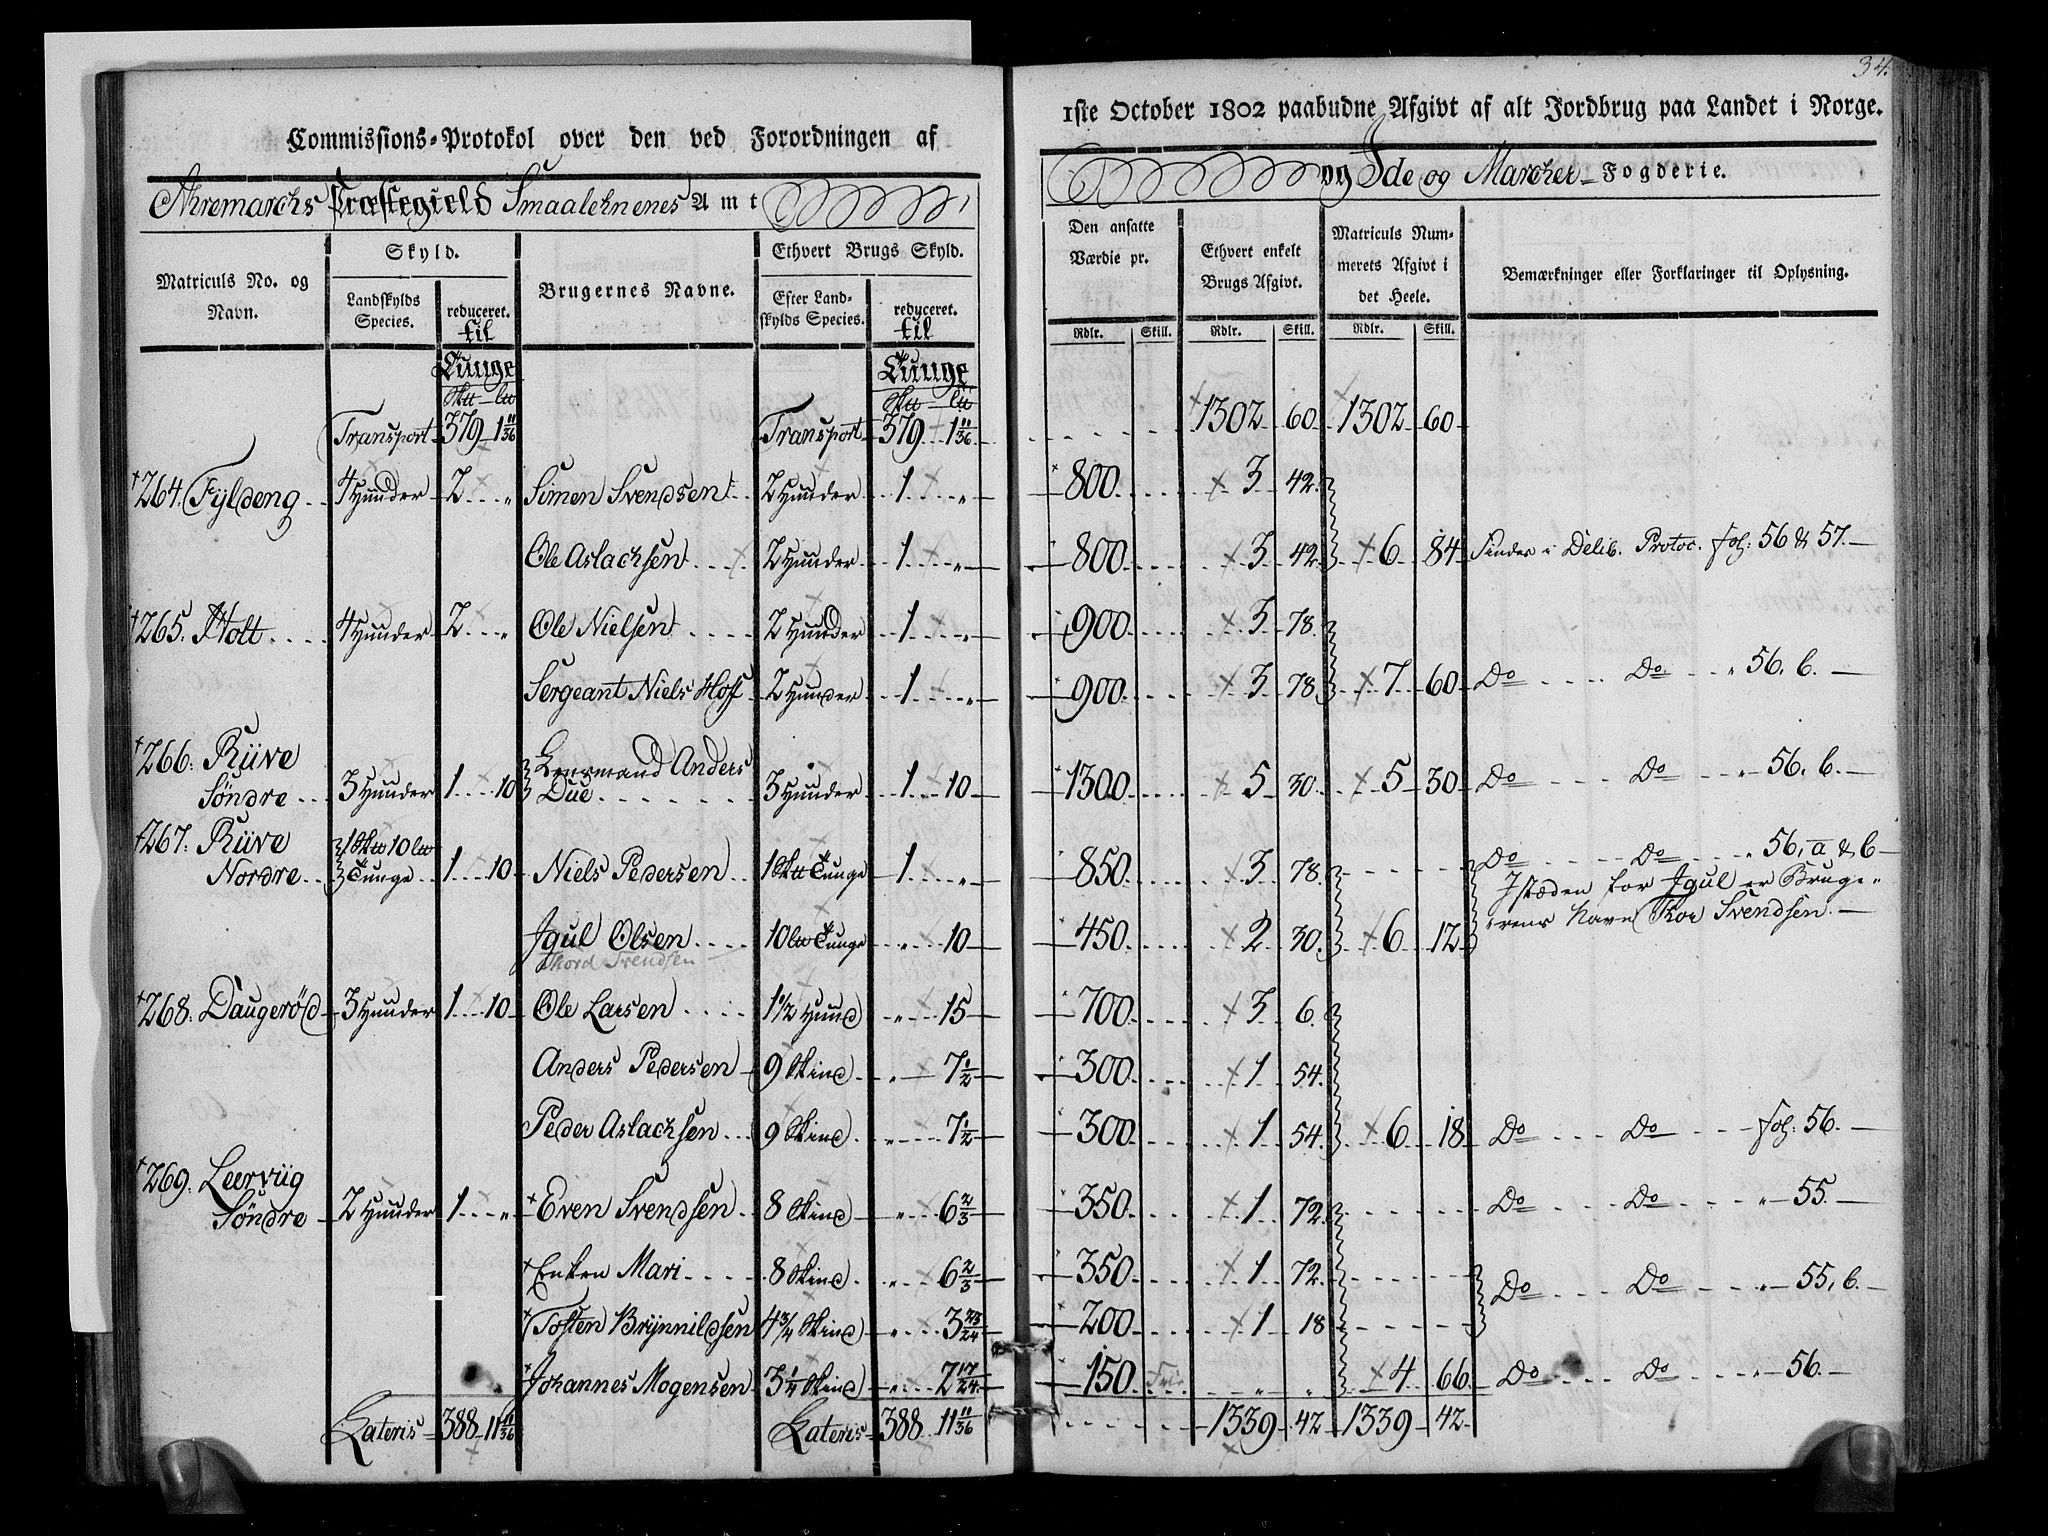 34.
Commissions-Protokol over den ved Forordningen af
1ste October 1802 paabudne Afgivt af alt Jordbrug paa Landet i Norge.
Ahremarchs Præstegield Smaalehnenes Amt
og Ide og Marcker Fogderie.
Matriculs No. og Navn.
Skyld.
Landskylds Species.
reduceret.
til
Tunge
Brugernes Navne.
Ethvert Brugs Skyld.
Efter Landskylds Species.
reduceret.
til
Tunge
Den ansatte Værdie pr.
Ethvert enkelt Brugs Afgivt.
Matriculs Nummerets Afgivt i det Heele.
Bemærkninger eller Forklaringer til Oplysning.
Rdlr. Skill. Rdlr. Skill. Rdlr. Skill.
Transport 379 1 11/36 Transport 379 1 11/36 1302 60 1302 60
264. Fyldeng 4 Hunder 2 " Simen Svendsen 2 Hunder 1 " 800 3 42
Ole Aslachsen 2 Hunder 1 " 800 3 42 6 84 Findes i Delib. Protoc. fol: 56 & 57.
265. Holt 4 Hunder 2 " Ole Nielsen 2 Hunder 1 " 900 3 78
Sergeant Niels Hof 2 Hunder 1 " 900 3 78 7 60 Do Do " 56, b.
266. Rüve
Söndre 3 Hunder 1 10 Lensmand Anders
Due 3 Hunder 1 10 1300 5 30 5 30 Do Do " 56, b.
267. Rüve
Nordre 1 Sktt 10 ltt
Tunge 1 10 Niels Pedersen 1 Sktt Tunge 1 " 850 3 78 Do Do " 56, a & b
Istæden for Igul er Bruge-
rens Navn Tkor Svendsen.
Igul Olsen 10 ltt Tunge " 10 450 2 30 6 12
Tkord Svendsen
268. Daugeröd 3 Hunder 1 10 Ole Larsen 1 1/2 Hund " 15 700 3 6
Anders Pedersen 9 Skind " 7 1/2 300 1 54
Peder Aslachsen 9 Skind " 7 1/2 300 1 54 6 18 Do Do fol: 56.
269. Leervüg
Söndre 2 Hunder 1 " Even Svendsen 8 Skind " 6 2/3 350 1 72 Do Do " 55.
Enken Mari 8 Skind " 6 2/3 350 1 72 Do Do " 55, b.
Tosten Brÿnnildsen 4 3/4 Skind " 3 23/24 200 1 18
Johannes Mogensen 3 1/4 Skind " 2 17/24 150 Frie " " 4 66 Do Do " 56.
Lateris 388 11 11/36 Lateris 388 11 11/36 1339 42 1339 42